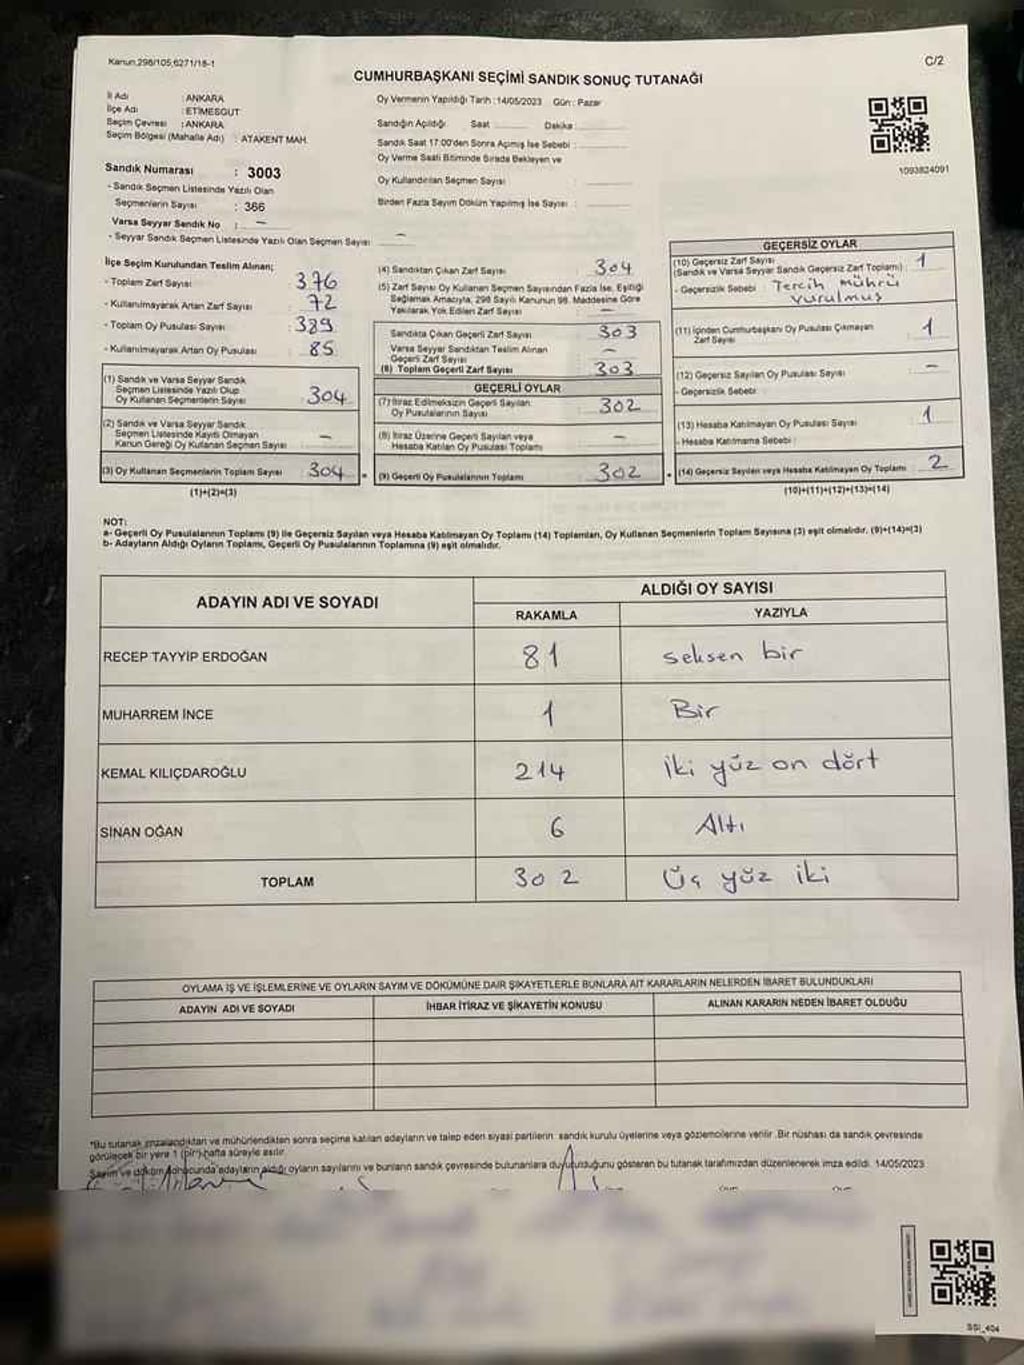 Kanun,298/105,6271/18-1
C/2
CUMHURBAŞKANI SEÇİMİ SANDIK SONUÇ TUTANAĞI
İl Adı : ANKARA
İlçe Adı : ETİMESGUT
Seçim Çevresi : ANKARA
Seçim Bölgesi (Mahalle Adı) : ATAKENT MAH.
Sandık Numarası : 3003
- Sandık Seçmen Listesinde Yazılı Olan
Seçmenlerin Sayısı : 366
Varsa Seyyar Sandık No : —
- Seyyar Sandık Seçmen Listesinde Yazılı Olan Seçmen Sayısı —
Oy Vermenin Yapıldığı Tarih : 14/05/2023 Gün : Pazar
Sandığın Açıldığı Saat Dakika :
Sandık Saat 17:00'den Sonra Açılmış İse Sebebi :
Oy Verme Saati Bitiminde Sırada Bekleyen ve
Oy Kullandırılan Seçmen Sayısı :
Birden Fazla Sayım Döküm Yapılmış İse Sayısı :
1093824091
İlçe Seçim Kurulundan Teslim Alınan;
- Toplam Zarf Sayısı : 376
- Kullanılmayarak Artan Zarf Sayısı : 72
- Toplam Oy Pusulası Sayısı : 389
- Kullanılmayarak Artan Oy Pusulası : 85
(1) Sandık ve Varsa Seyyar Sandık
Seçmen Listesinde Yazılı Olup
Oy Kullanan Seçmenlerin Sayısı : 304
(2) Sandık ve Varsa Seyyar Sandık
Seçmen Listesinde Kayıtlı Olmayan
Kanun Gereği Oy Kullanan Seçmen Sayısı : —
(3) Oy Kullanan Seçmenlerin Toplam Sayısı : 304 =
(1)+(2)=(3)
(4) Sandıktan Çıkan Zarf Sayısı : 304
(5) Zarf Sayısı Oy Kullanan Seçmen Sayısından Fazla İse, Eşitliği
Sağlamak Amacıyla, 298 Sayılı Kanunun 98. Maddesine Göre
Yakılarak Yok Edilen Zarf Sayısı : —
Sandıkta Çıkan Geçerli Zarf Sayısı : 303
Varsa Seyyar Sandıktan Teslim Alınan
Geçerli Zarf Sayısı : —
(6) Toplam Geçerli Zarf Sayısı : 303
GEÇERLİ OYLAR
(7) İtiraz Edilmeksizin Geçerli Sayılan
Oy Pusulalarının Sayısı : 302
(8) İtiraz Üzerine Geçerli Sayılan veya
Hesaba Katılan Oy Pusulası Toplamı : —
(9) Geçerli Oy Pusulalarının Toplamı : 302 +
GEÇERSİZ OYLAR
(10) Geçersiz Zarf Sayısı
(Sandık ve Varsa Seyyar Sandık Geçersiz Zarf Toplamı) : 1
- Geçersizlik Sebebi : Tercih Mührü
vurulmuş
(11) İçinden Cumhurbaşkanı Oy Pusulası Çıkmayan
Zarf Sayısı : 1
(12) Geçersiz Sayılan Oy Pusulası Sayısı : —
- Geçersizlik Sebebi :
(13) Hesaba Katılmayan Oy Pusulası Sayısı : 1
- Hesaba Katılmama Sebebi :
(14) Geçersiz Sayılan veya Hesaba Katılmayan Oy Toplamı : 2
(10)+(11)+(12)+(13)=(14)
NOT:
a- Geçerli Oy Pusulalarının Toplamı (9) ile Geçersiz Sayılan veya Hesaba Katılmayan Oy Toplamı (14) Toplamları, Oy Kullanan Seçmenlerin Toplam Sayısına (3) eşit olmalıdır. (9)+(14)=(3)
b- Adayların Aldığı Oyların Toplamı, Geçerli Oy Pusulalarının Toplamına (9) eşit olmalıdır.
ADAYIN ADI VE SOYADI ALDIĞI OY SAYISI
RAKAMLA YAZIYLA
RECEP TAYYİP ERDOĞAN 81 seksen bir
MUHARREM İNCE 1 Bir
KEMAL KILIÇDAROĞLU 214 iki yüz on dört
SİNAN OĞAN 6 Altı
TOPLAM 302 Üç yüz iki
OYLAMA İŞ VE İŞLEMLERİNE VE OYLARIN SAYIM VE DÖKÜMÜNE DAİR ŞİKAYETLERLE BUNLARA AİT KARARLARIN NELERDEN İBARET BULUNDUKLARI
ADAYIN ADI VE SOYADI İHBAR İTİRAZ VE ŞİKAYETİN KONUSU ALINAN KARARIN NEDEN İBARET OLDUĞU
*Bu tutanak imzalandıktan ve mühürlendikten sonra seçime katılan adayların ve talep eden siyasi partilerin sandık kurulu üyelerine veya gözlemcilerine verilir. Bir nüshası da sandık çevresinde
görülecek bir yere 1 (bir) hafta süreyle asılır.
Sayım ve döküm sonucunda adayların aldığı oyların sayılarını ve bunların sandık çevresinde bulunanlara duyurulduğunu gösteren bu tutanak tarafımızdan düzenlenerek imza edildi. 14/05/2023
SSI_404